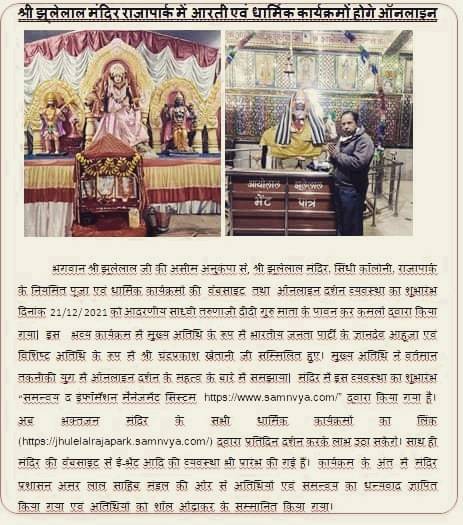 श्री झूलेलाल मंदिर राजापार्क में आरती एवं धार्मिक कार्यक्रमों होगे ऑनलाइन
आयोलाल झूलेलाल
भेंट पात्र
भगवान श्री झूलेलाल जी की असीम अनुकंपा से, श्री झूलेलाल मंदिर, सिंधी कॉलोनी, राजापार्क
के नियमित पूजा एवं धार्मिक कार्यक्रमों की वेबसाइट तथा ऑनलाइन दर्शन व्यवस्था का शुभारंभ
दिनांक 21/12/2021 को आदरणीय साध्वी तरुणाजी दीदी गुरु माता के पावन कर कमलों द्वारा किया
गया| इस भव्य कार्यक्रम में मुख्य अतिथि के रूप में भारतीय जनता पार्टी के ज्ञानदेव आहूजा एवं
विशिष्ट अतिथि के रूप में श्री चंद्रप्रकाश खेतानी जी सम्मिलित हुए| मुख्य अतिथि ने वर्तमान
तकनीकी युग में ऑनलाइन दर्शन के महत्व के बारे में समझाया| मंदिर में इस व्यवस्था का शुभारंभ
“समन्वय द इंफॉर्मेशन मैनेजमेंट सिस्टम https://www.samnvya.com/” द्वारा किया गया है।
अब भक्तजन मंदिर के सभी धार्मिक कार्यक्रमों का लिंक
(https://jhulelalrajapark.samnvya.com/) द्वारा प्रतिदिन दर्शन करके लाभ उठा सकेंगे। साथ ही
मंदिर की वेबसाइट से ई-भेंट आदि की व्यवस्था भी प्रारंभ की गई हैं। कार्यक्रम के अंत में मंदिर
प्रशासन अमर लाल साहिब मंडल की ओर से अतिथियों एवं समन्वय का धन्यवाद ज्ञापित
किया गया एवं अतिथियों का शॉल ओढ़ाकर के सम्मानित किया गया।